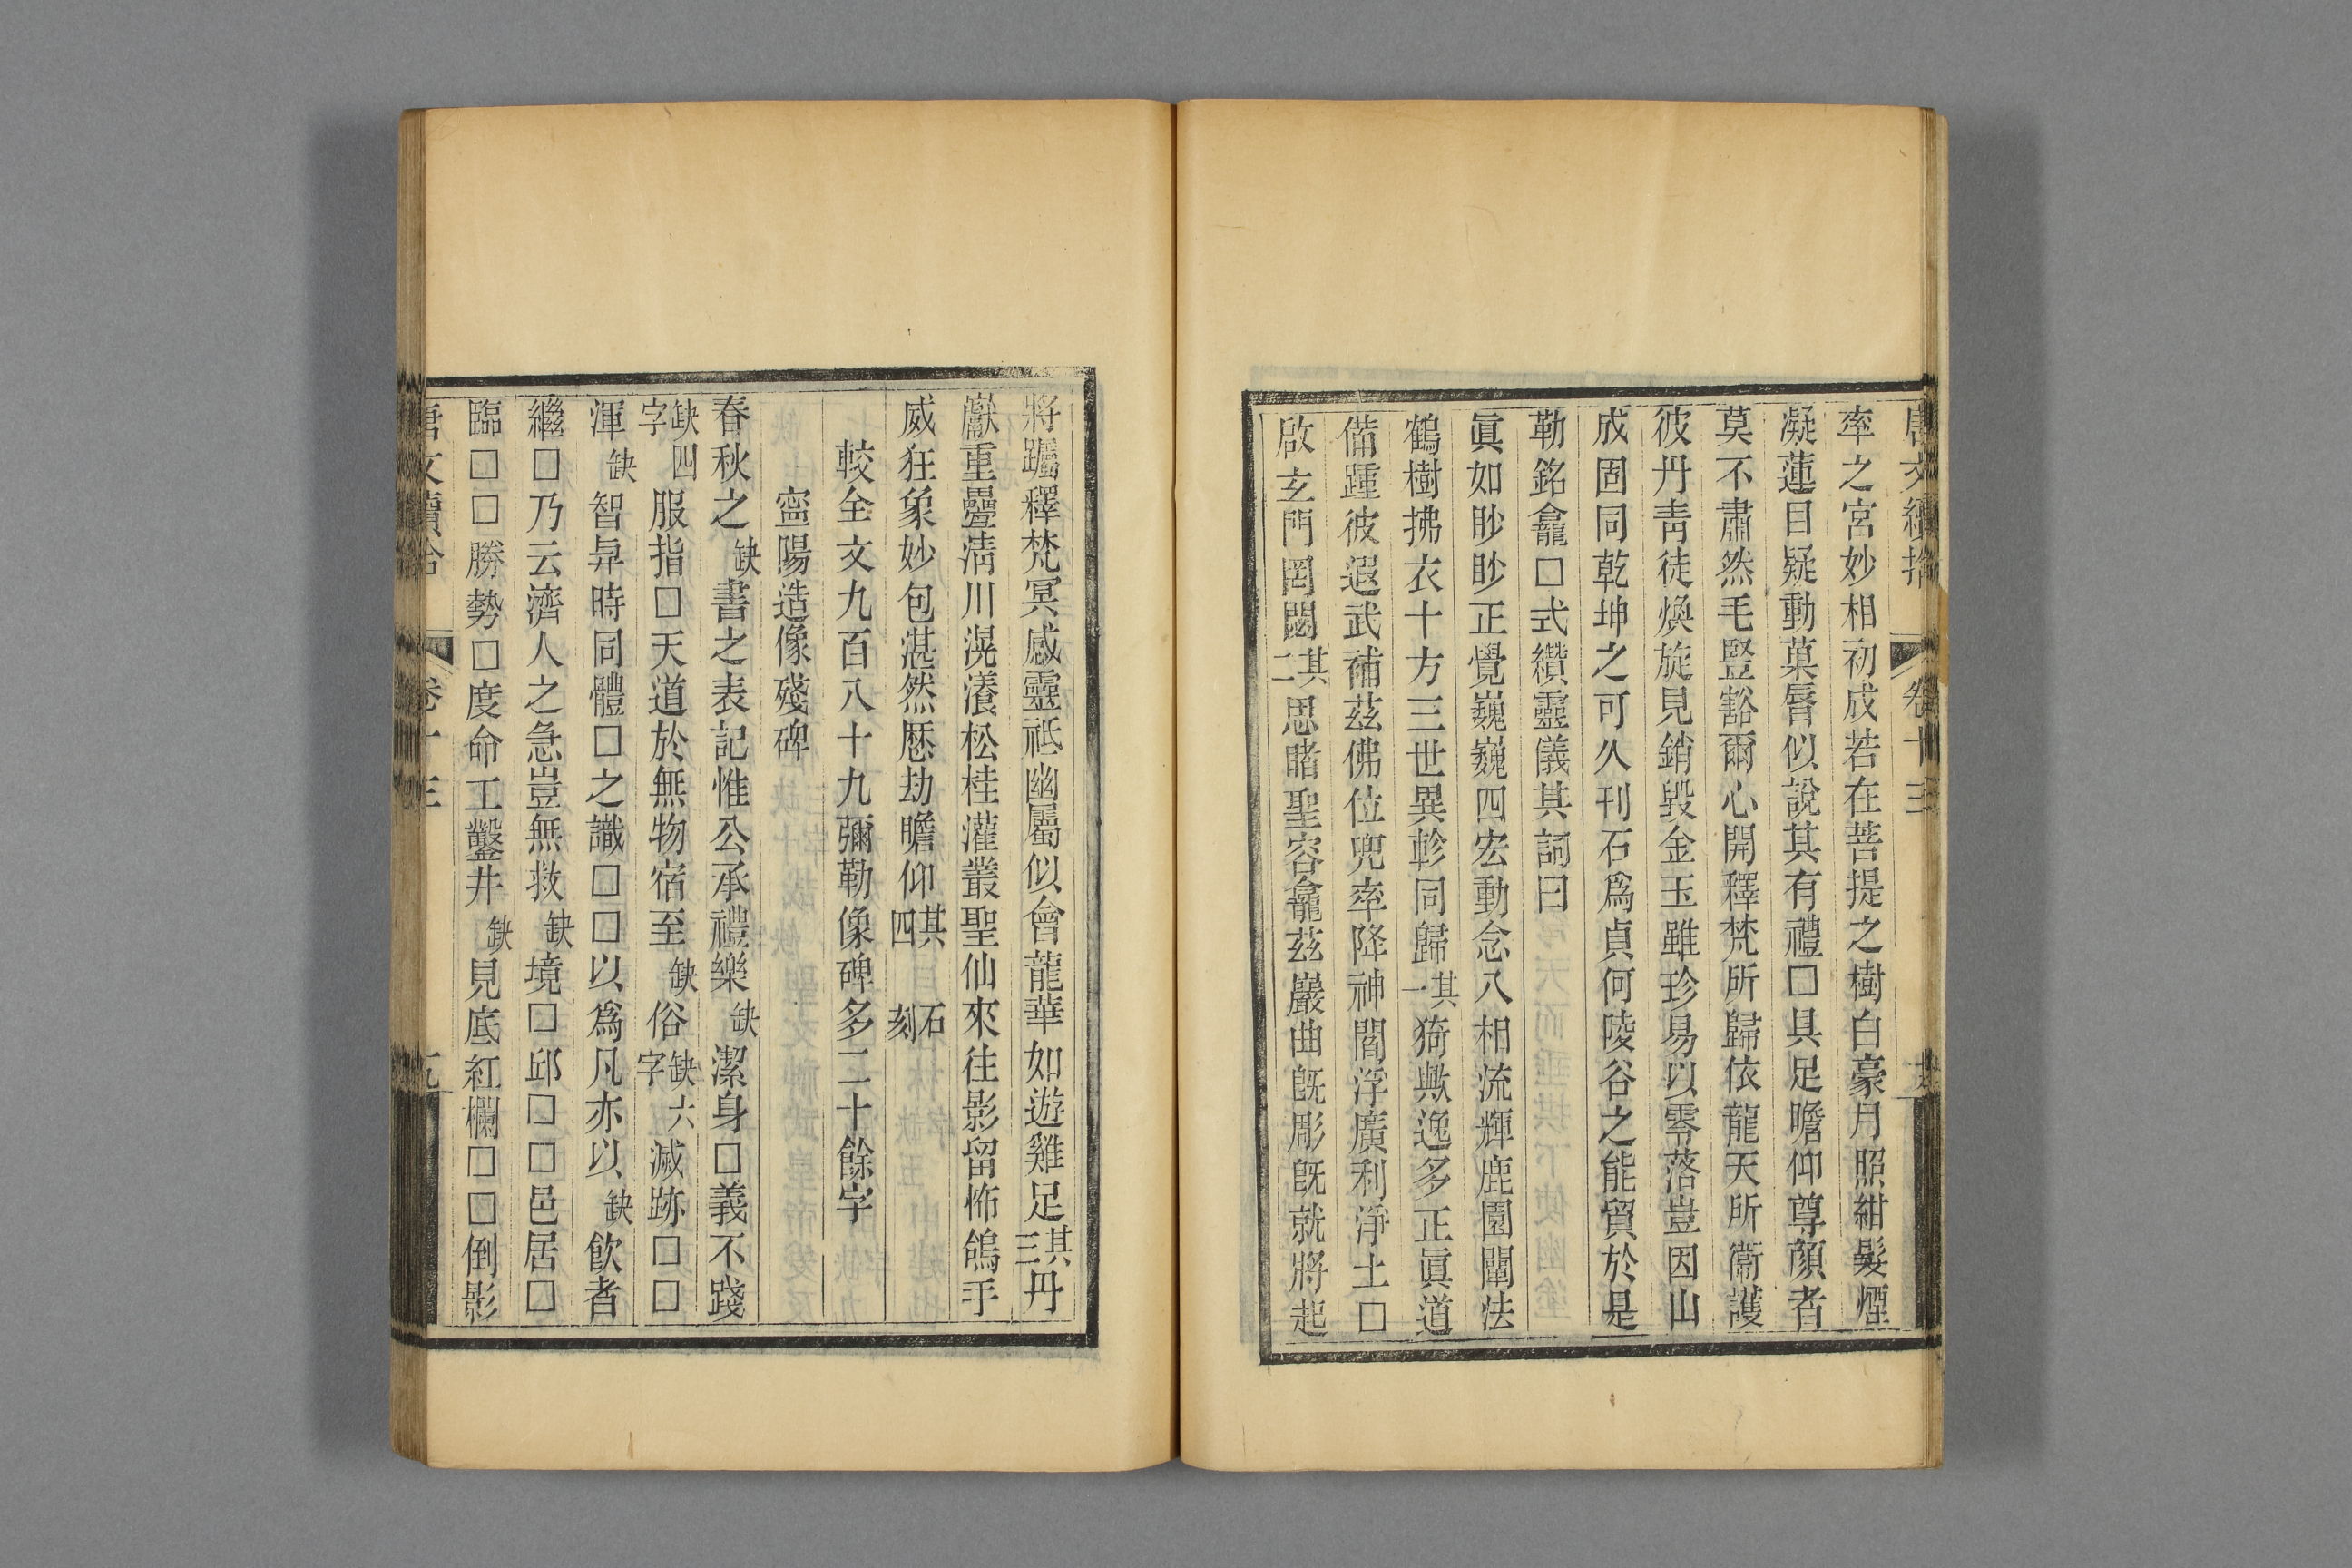 唐文續拾 卷十三
率之宮妙相初成若在菩提之樹白豪月照紺髮煙
凝蓮目疑動菓唇似說其有禮□具足瞻仰尊顏者
莫不肅然毛豎豁爾心開釋梵所歸依龍天所衞護
彼丹靑徒煥旋見銷毀金玉雖珍易以零落豈因山
成固同乾坤之可久刊石爲貞何陵谷之能貿於是
勒銘龕□式纘靈儀其詞曰
眞如眇眇正覺巍巍四宏動念八相流輝鹿園闡法
鶴樹拂衣十方三世異軫同歸其一猗歟逸多正眞道
備踵彼遐武補茲佛位兜率降神閻浮廣利淨土□
啟玄門罔閟其二思睹聖容龕茲巖曲旣彫旣就將起
將躅釋梵冥感靈祇幽屬似會龍華如遊雞足其三丹
巘重疊淸川滉瀁松桂灌叢聖仙來往影留怖鴿手
威狂象妙包湛然懕劫瞻仰其四 石刻
較全文九百八十九彌勒像碑多二十餘字
寍陽造像殘碑
春秋之缺書之表記惟公承禮樂缺潔身□義不踐
缺四字服指□天道於無物宿至缺俗缺六字滅跡□□
渾缺智舁時同體□之識□□以爲凡亦以缺飲者
繼□乃云濟人之急豈無救缺境□邱□□邑居□
臨□□勝勢□度命工鑿井缺見底紅欄□□倒影
唐文續拾 卷十三